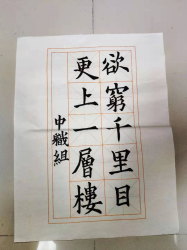 欲窮千里目
更上一層樓
中職組